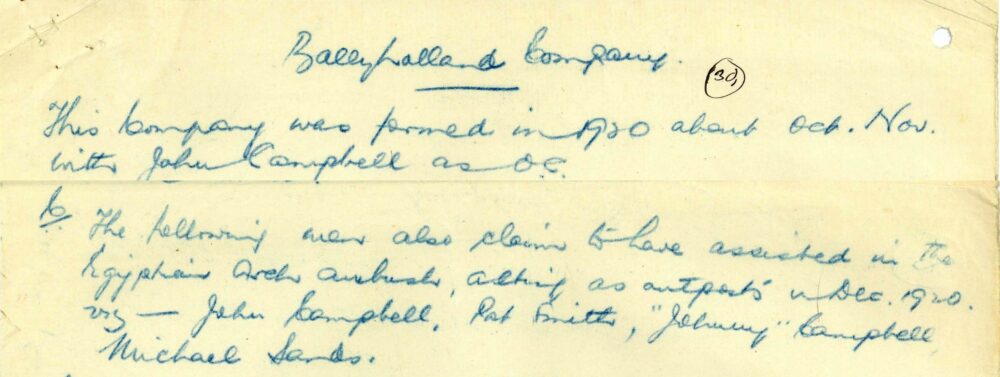 Ballyholland Company.
30,
This Company was formed in 1920 about Oct. Nov.
with John Campbell as O.C.
The following men also claim to have assisted in the
Egyptian Arch ambush, acting as outposts in Dec. 1920.
viz — John Campbell, Pat Smith, "Johnny" Campbell
Michael Sands.